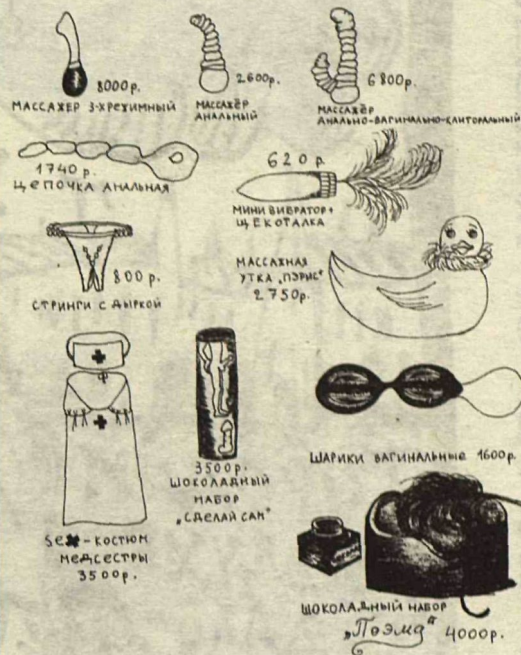 8000р.
МАССАЖЕР 3-ХРЕЖИМНЫЙ
2600р.
МАССАЖЁР
АНАЛЬНЫЙ
6800р.
МАССАЖЁР
АНАЛЬНО-ВАГИНАЛЬНО-КЛИТОРАЛЬНЫЙ
1740р.
ЦЕПОЧКА АНАЛЬНАЯ
620 р.
МИНИ ВИБРАТОР+
ЩЕКОТАЛКА
800р.
СТРИНГИ С ДЫРКОЙ
МАССАЖНАЯ
УТКА „ПЭРИС“
2750р.
SEX-КОСТЮМ
МЕДСЕСТРЫ
3500р.
3500р.
ШОКОЛАДНЫЙ
НАБОР
„СДЕЛАЙ САМ“
ШАРИКИ ВАГИНАЛЬНЫЕ 1600р.
ШОКОЛАДНЫЙ НАБОР
„Поэма“ 4000р.